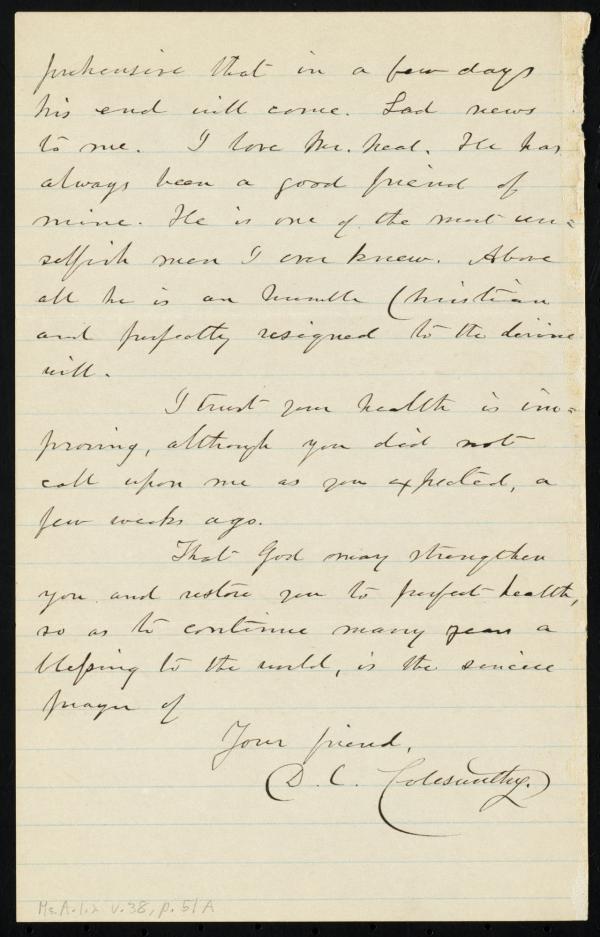 prehensive that in a few days
his end will come. Sad news
to me. I love Mr. Neal. He has
always been a good friend of
mine. He is one of the most un=
selfish men I ever knew. Above
all he is an humble Christian
and perfectly resigned to the divine
will.
I trust your health is im=
proving, although you did not
call upon me as you expected, a
few weeks ago.
That God may strengthen
you and restore you to perfect health,
so as to continue many years a
blessing to the world, is the sincere
prayer of
Your friend,
D. C. Colesworthy.
Ms.A.1.2 v.38, p.51A